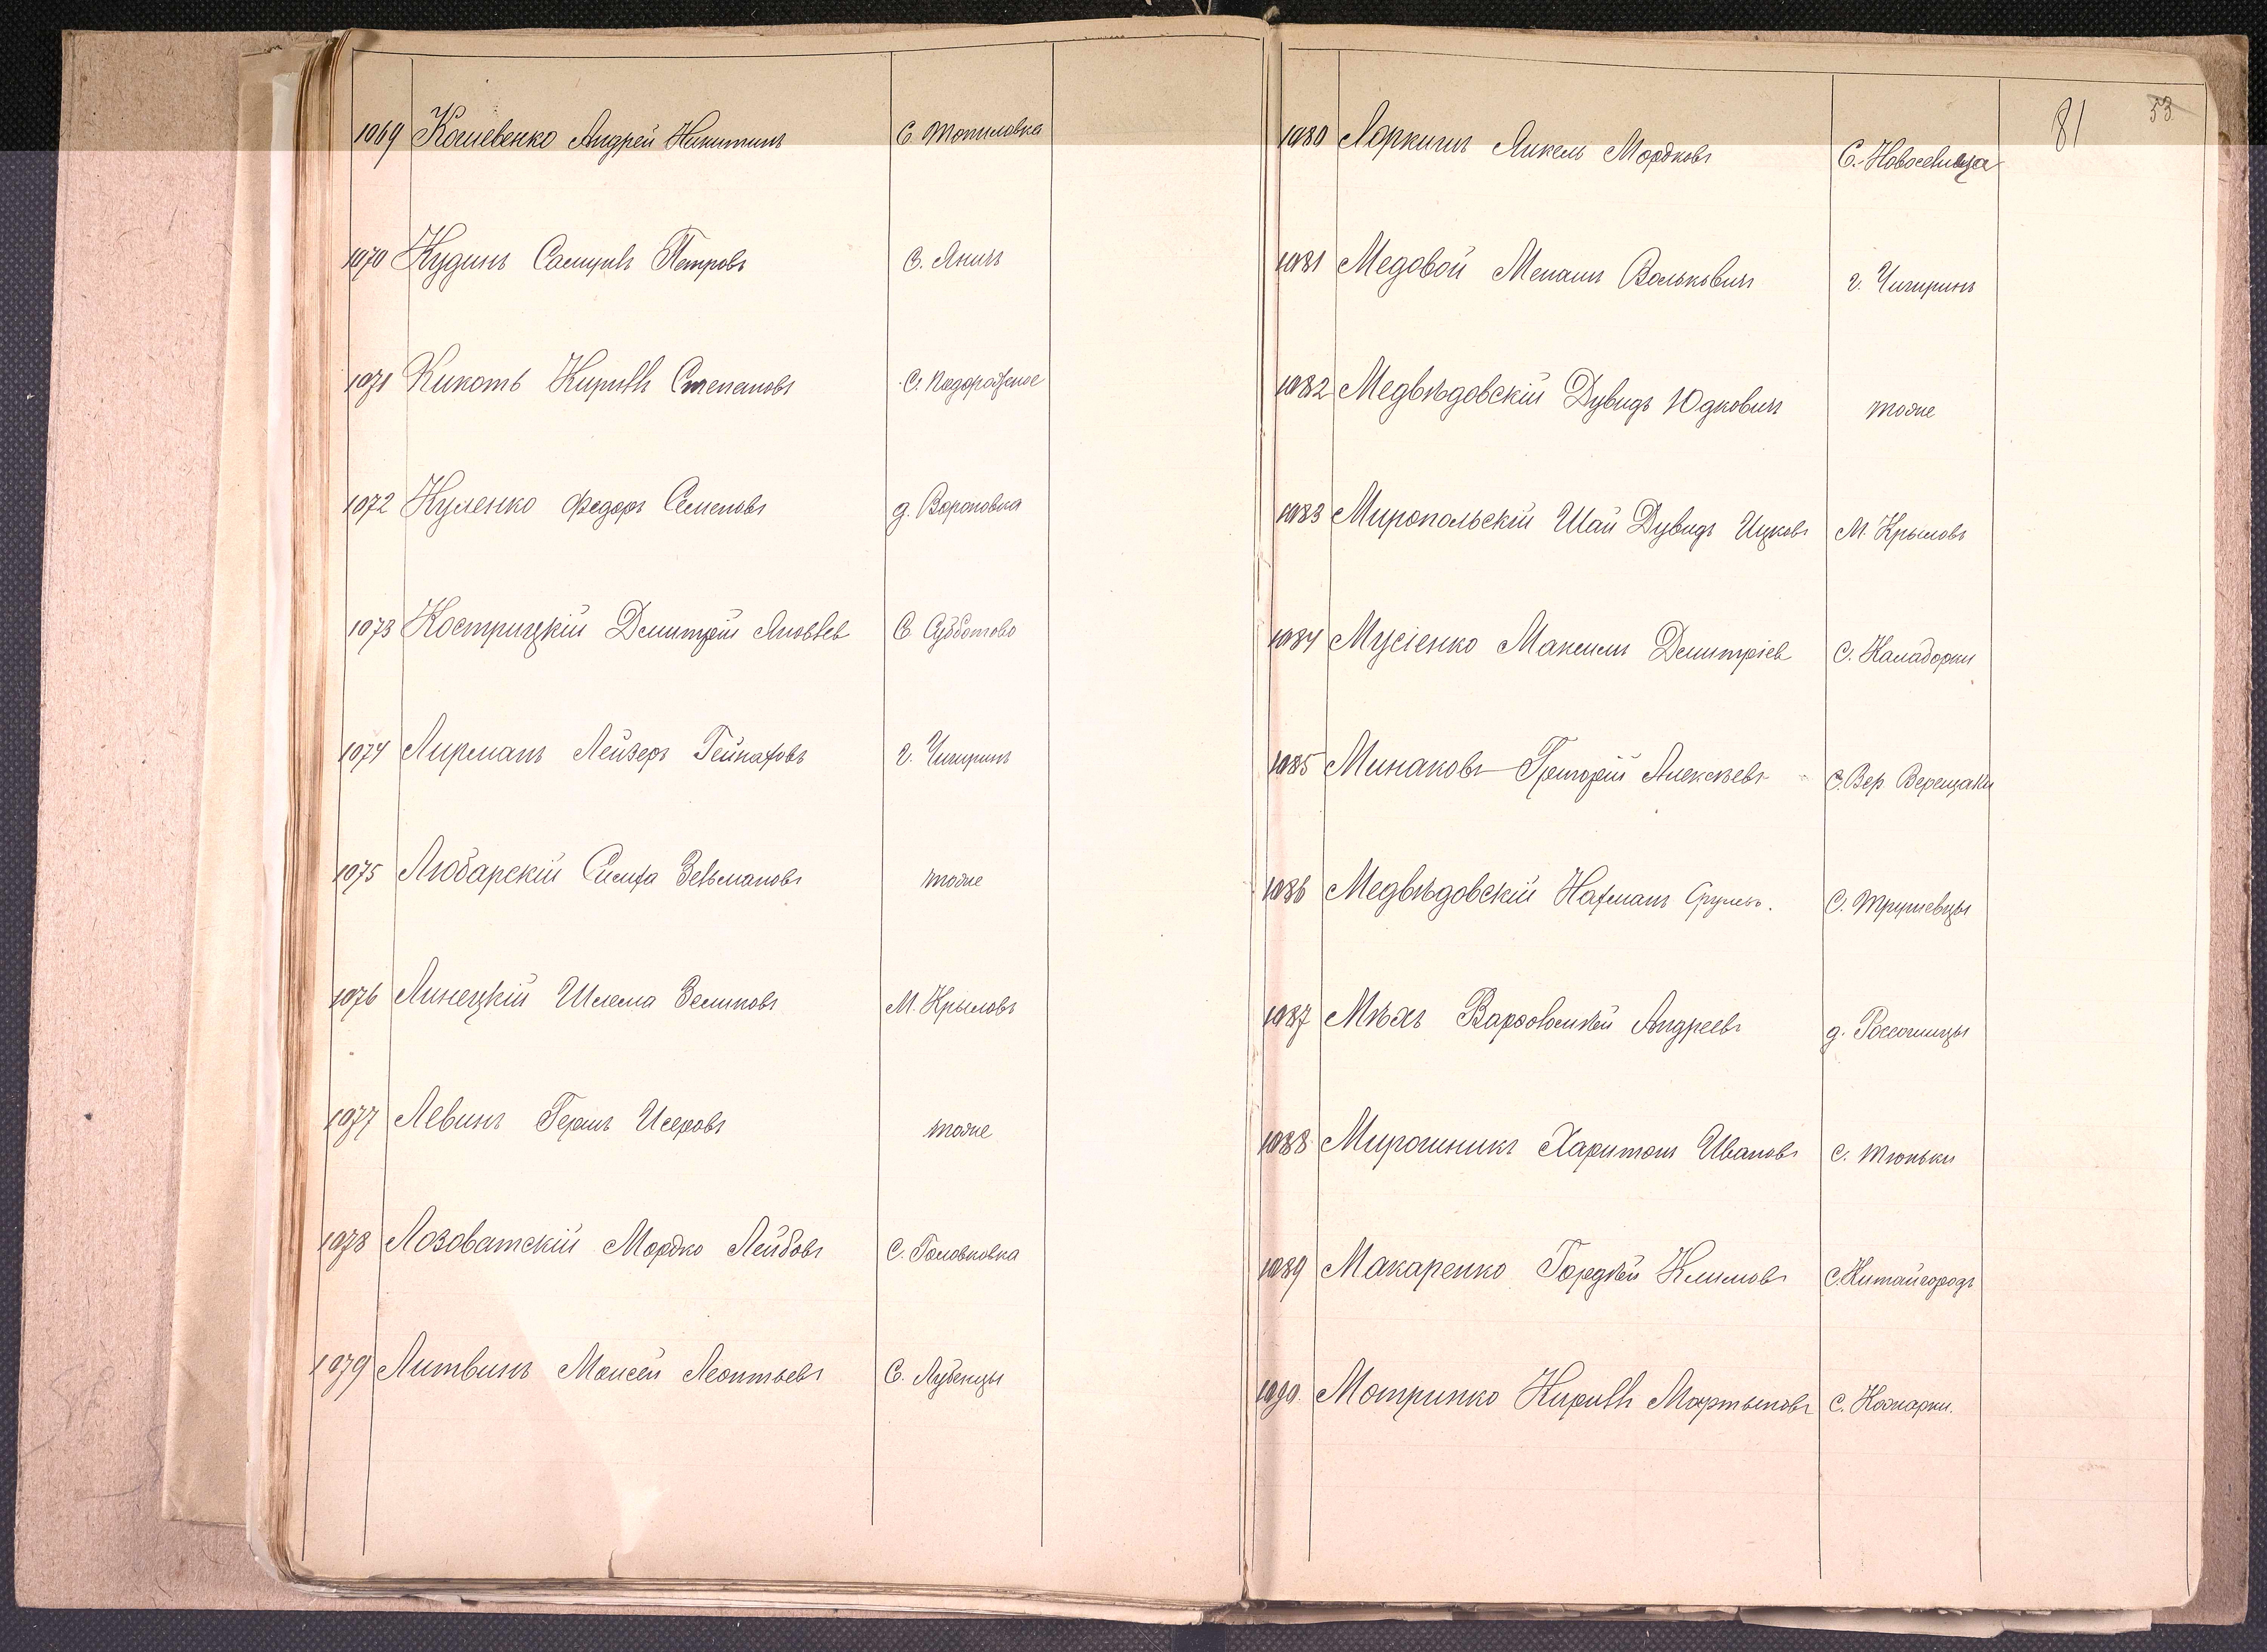 1069 Кошевенко Андрей Никитинъ С. Топиловка
1070 Кудинъ Самуилъ Петровъ С. Яничъ
1071 Кикоть Кириллъ Степановъ С. Подорожное
1072 Куленко Федоръ Семеновъ д. Вороновка
1073 Кострицкій Дмитрій Яковлев С. Субботово
1074 Лирманъ Лейзеръ Гейнаховъ г. Чигиринъ
1075 Любарскій Симха Зельмановъ тоже
1076 Линецкій Шлема Зеликовъ М. Крыловъ
1077 Левинъ Гершъ Исеровъ тоже
1078 Лозоватскій Мордко Лейбовъ С. Головковка
1079 Литвинъ Моисей Леонтьевъ С. Лубенцы
81 53
1080 Лоркишъ Янкель Мордковъ С. Новоселица
1081 Медовой Менаш Вольковичъ г. Чигиринъ
1082 Медвѣдовскій Дувидъ Юдкович тоже
1083 Миропольскій Шай Дувидъ Ицковъ М. Крыловъ
1084 Мусіенко Максимъ Дмитріев С. Калаборки
1085 Минаковъ Григорій Алексѣевъ С. Вер Верещаки
1086 Медвѣдовскій Нахманъ Срулев. С. Трушевцы
1087 Мѣхъ Варфоломѣй Андреевъ д. Россошинцы
1088 Мирошникъ Харитонъ Ивановъ С. Тюньки
1089 Макаренко Гордѣй Климовъ С. Китайгородъ
1090 Мотринко Кириллъ Мартыновъ С. Кожарки.